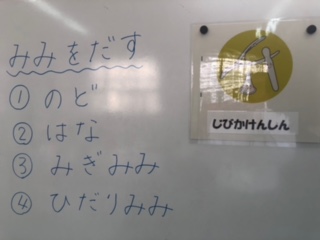 みみをだす
① のど
② はな
③ みぎみみ
④ ひだりみみ
じびかけんしん